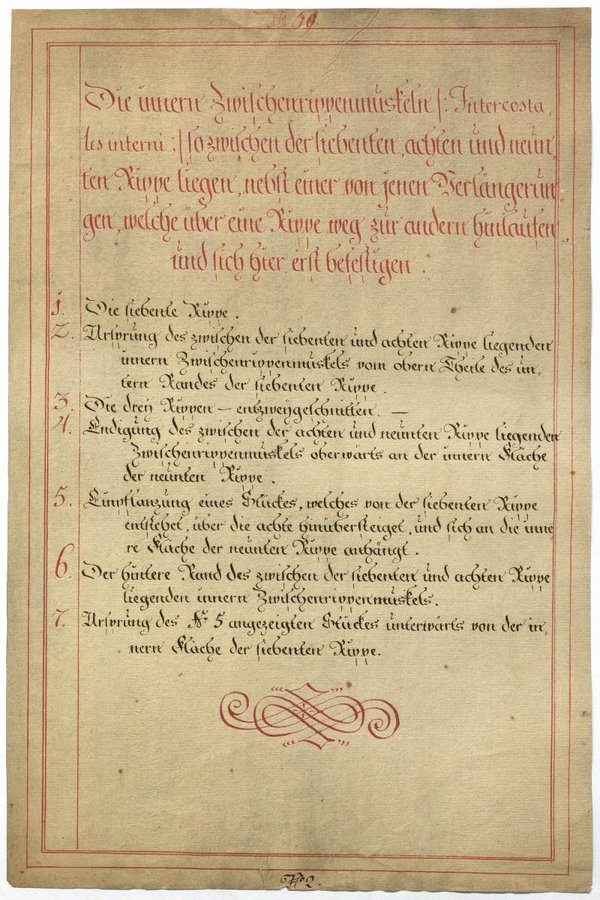 Die innern Zwischenrippenmuskeln /: Intercosta
les interni :/ so zwischen der siebenten, achten und neun
ten Rippe liegen, nebst einer von jenen Verlängerun
gen, welche über eine Rippe weg zur andern hinlaufen,
und sich hier erst befestigen.
1. Die siebente Rippe.
2. Ursprung des zwischen der siebenten und achten Rippe liegenden
innern Zwischenrippenmuskels vom obern Theile des un=
tern Randes der siebenten Rippe.
3. Die drey Rippen — entzweygeschnitten. —
4. Endigung des zwischen der achten und neunten Rippe liegenden
Zwischenrippenmuskels oberwärts an der innern Fläche
der neunten Rippe.
5. Einpflanzung eines Stückes, welches von der siebenten Rippe
entstehet, über die achte hinübersteiget, und sich an die inne
re Fläche der neunten Rippe anhängt.
6. Der hintere Rand des zwischen der siebenten und achten Rippe
liegenden innern Zwischenrippenmuskels.
7. Ursprung des N° 5 angezeigten Stückes unterwärts von der in=
nern Fläche der siebenten Rippe.